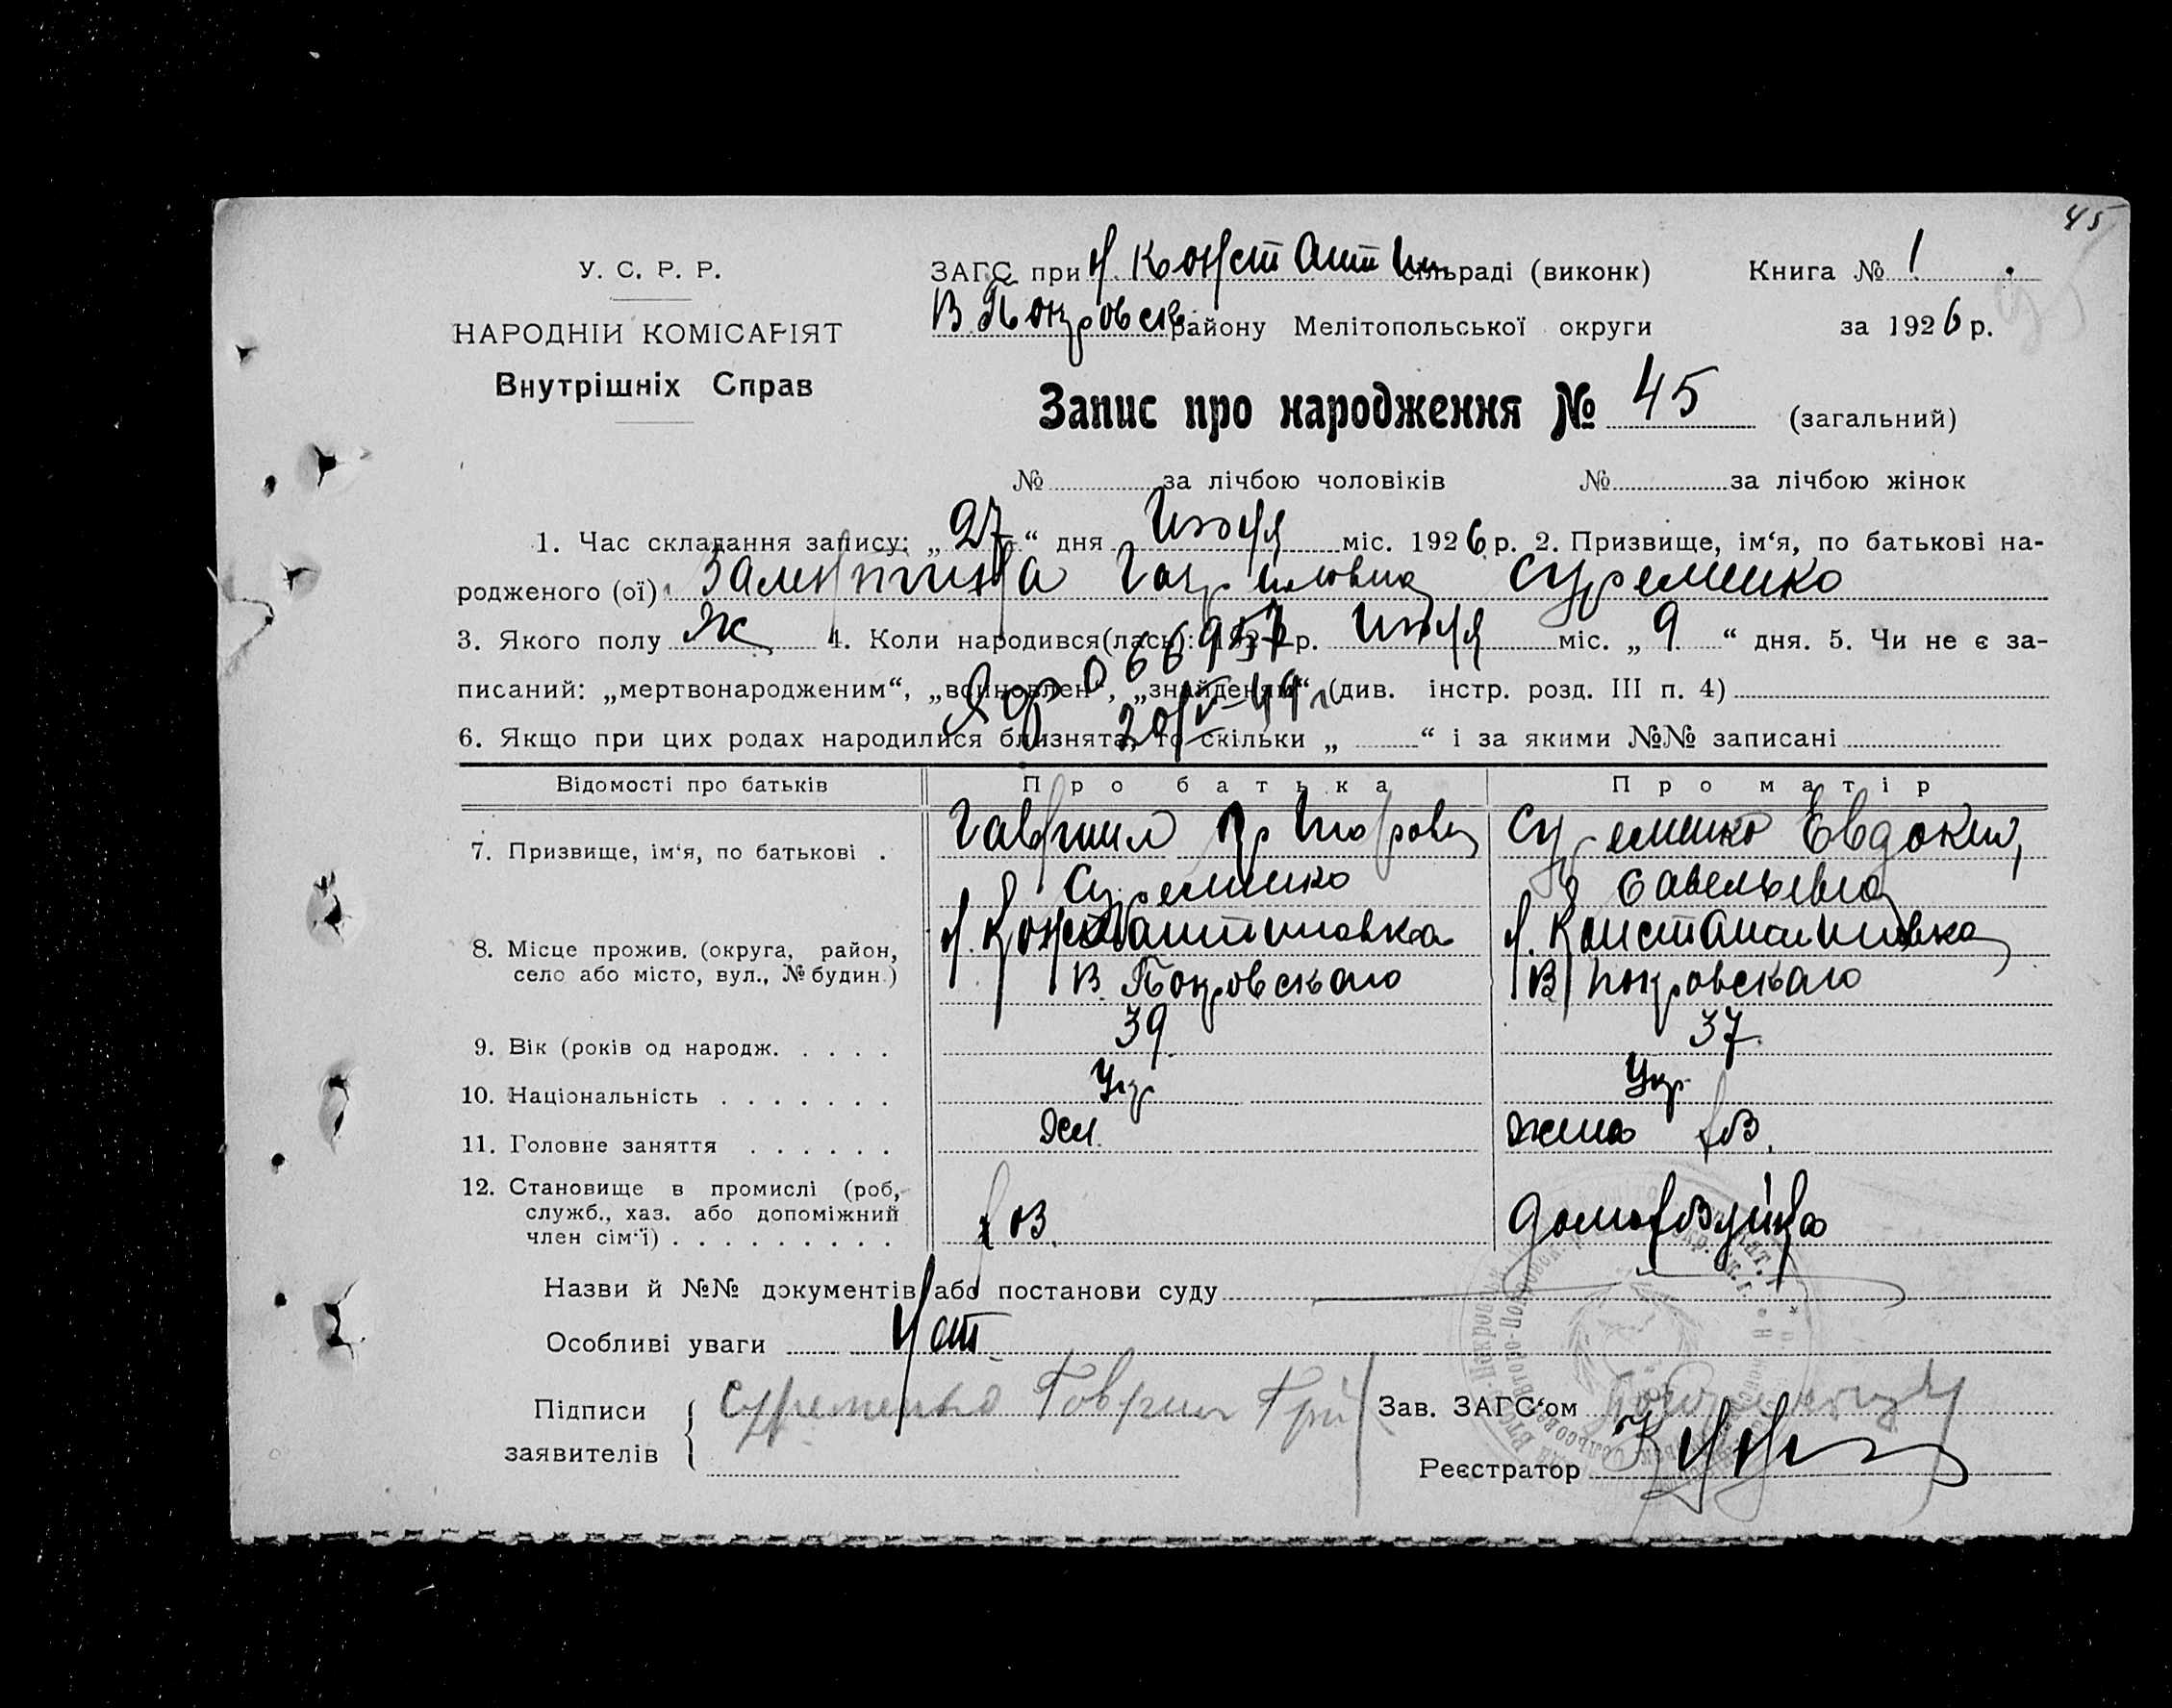 45
У. С. Р. Р.
НАРОДНІЙ КОМІСАРІЯТ
Внутрішніх Справ
ЗАГС при Н Константин сільраді (виконк) Книга № 1
В Покровск району Мелітопольської округи за 1926 р.
Запис про народження № 45 (загальний)
№ за лічбою чоловіків № за лічбою жінок
1. Час складання запису: „27“ дня Июля міс. 1926 р. 2. Призвище, ім‘я, по батькові на-
родженого (ої) Гавриловна Суременко
3. Якого полу Ж 4. Коли народився(лась): 192 р. Июля міс. „9“ дня. 5. Чи не є за-
писаний: „мертвонародженим“, „всиновлен“, „знайденям“ (див. інстр. розд. III п. 4)
6. Якщо при цих родах народилися близнята, то скільки „ “ і за якими №№ записані
Відомості про батьків Про батька Про матір
7. Призвище, ім‘я, по батькові . Гавриил Суременко Суременко Евдокия Савельевна
8. Місце прожив. (округа, район, село або місто, вул., № будин.) Н. Константиновка В. Покровского Н. Константиновка В Покровского
9. Вік (років од народж. . . . . 39 37
10. Національність . . . . . . . Укр Укр
11. Головне заняття . . . . . . Хл. жена
12. Становище в промислі (роб, служб., хаз. або допоміжний член сім‘ї) . . . . . . . . . хоз. домохозяйка
Назви й №№ документів або постанови суду
Особливі уваги
Підписи заявителів Суременко Гаврил Гри
Зав. ЗАГС‘ом
Реєстратор